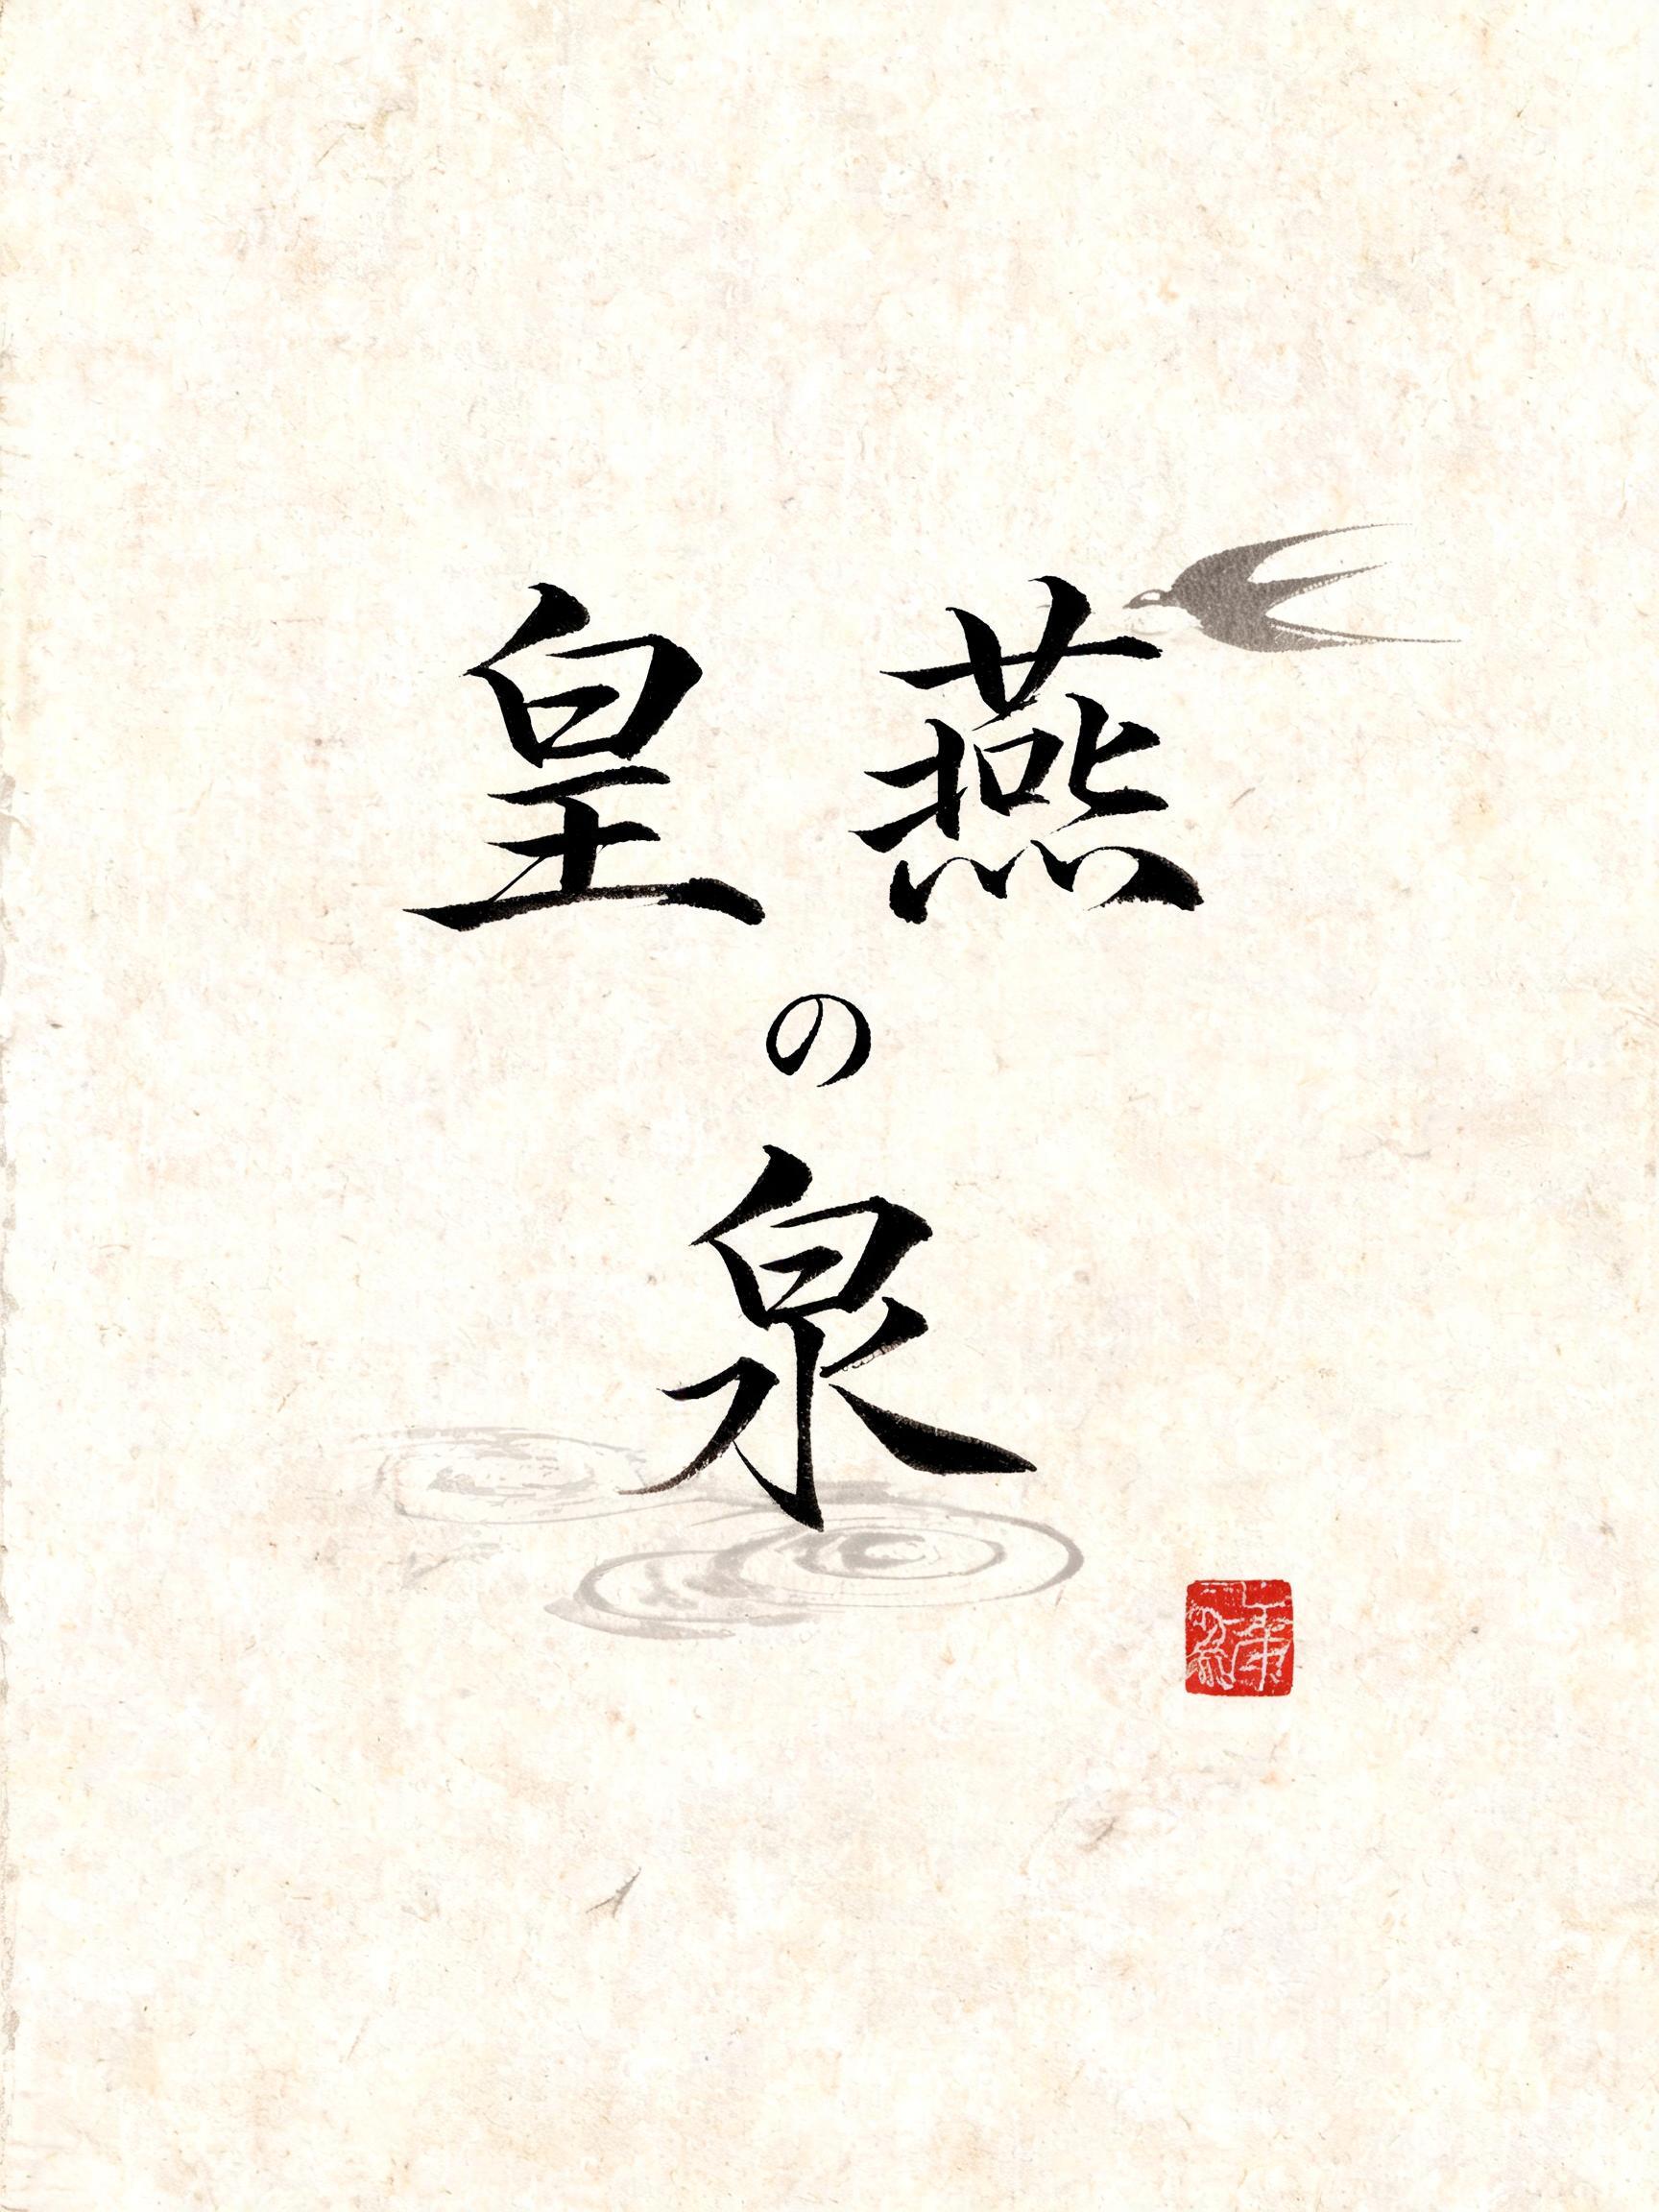 皇燕
の
泉